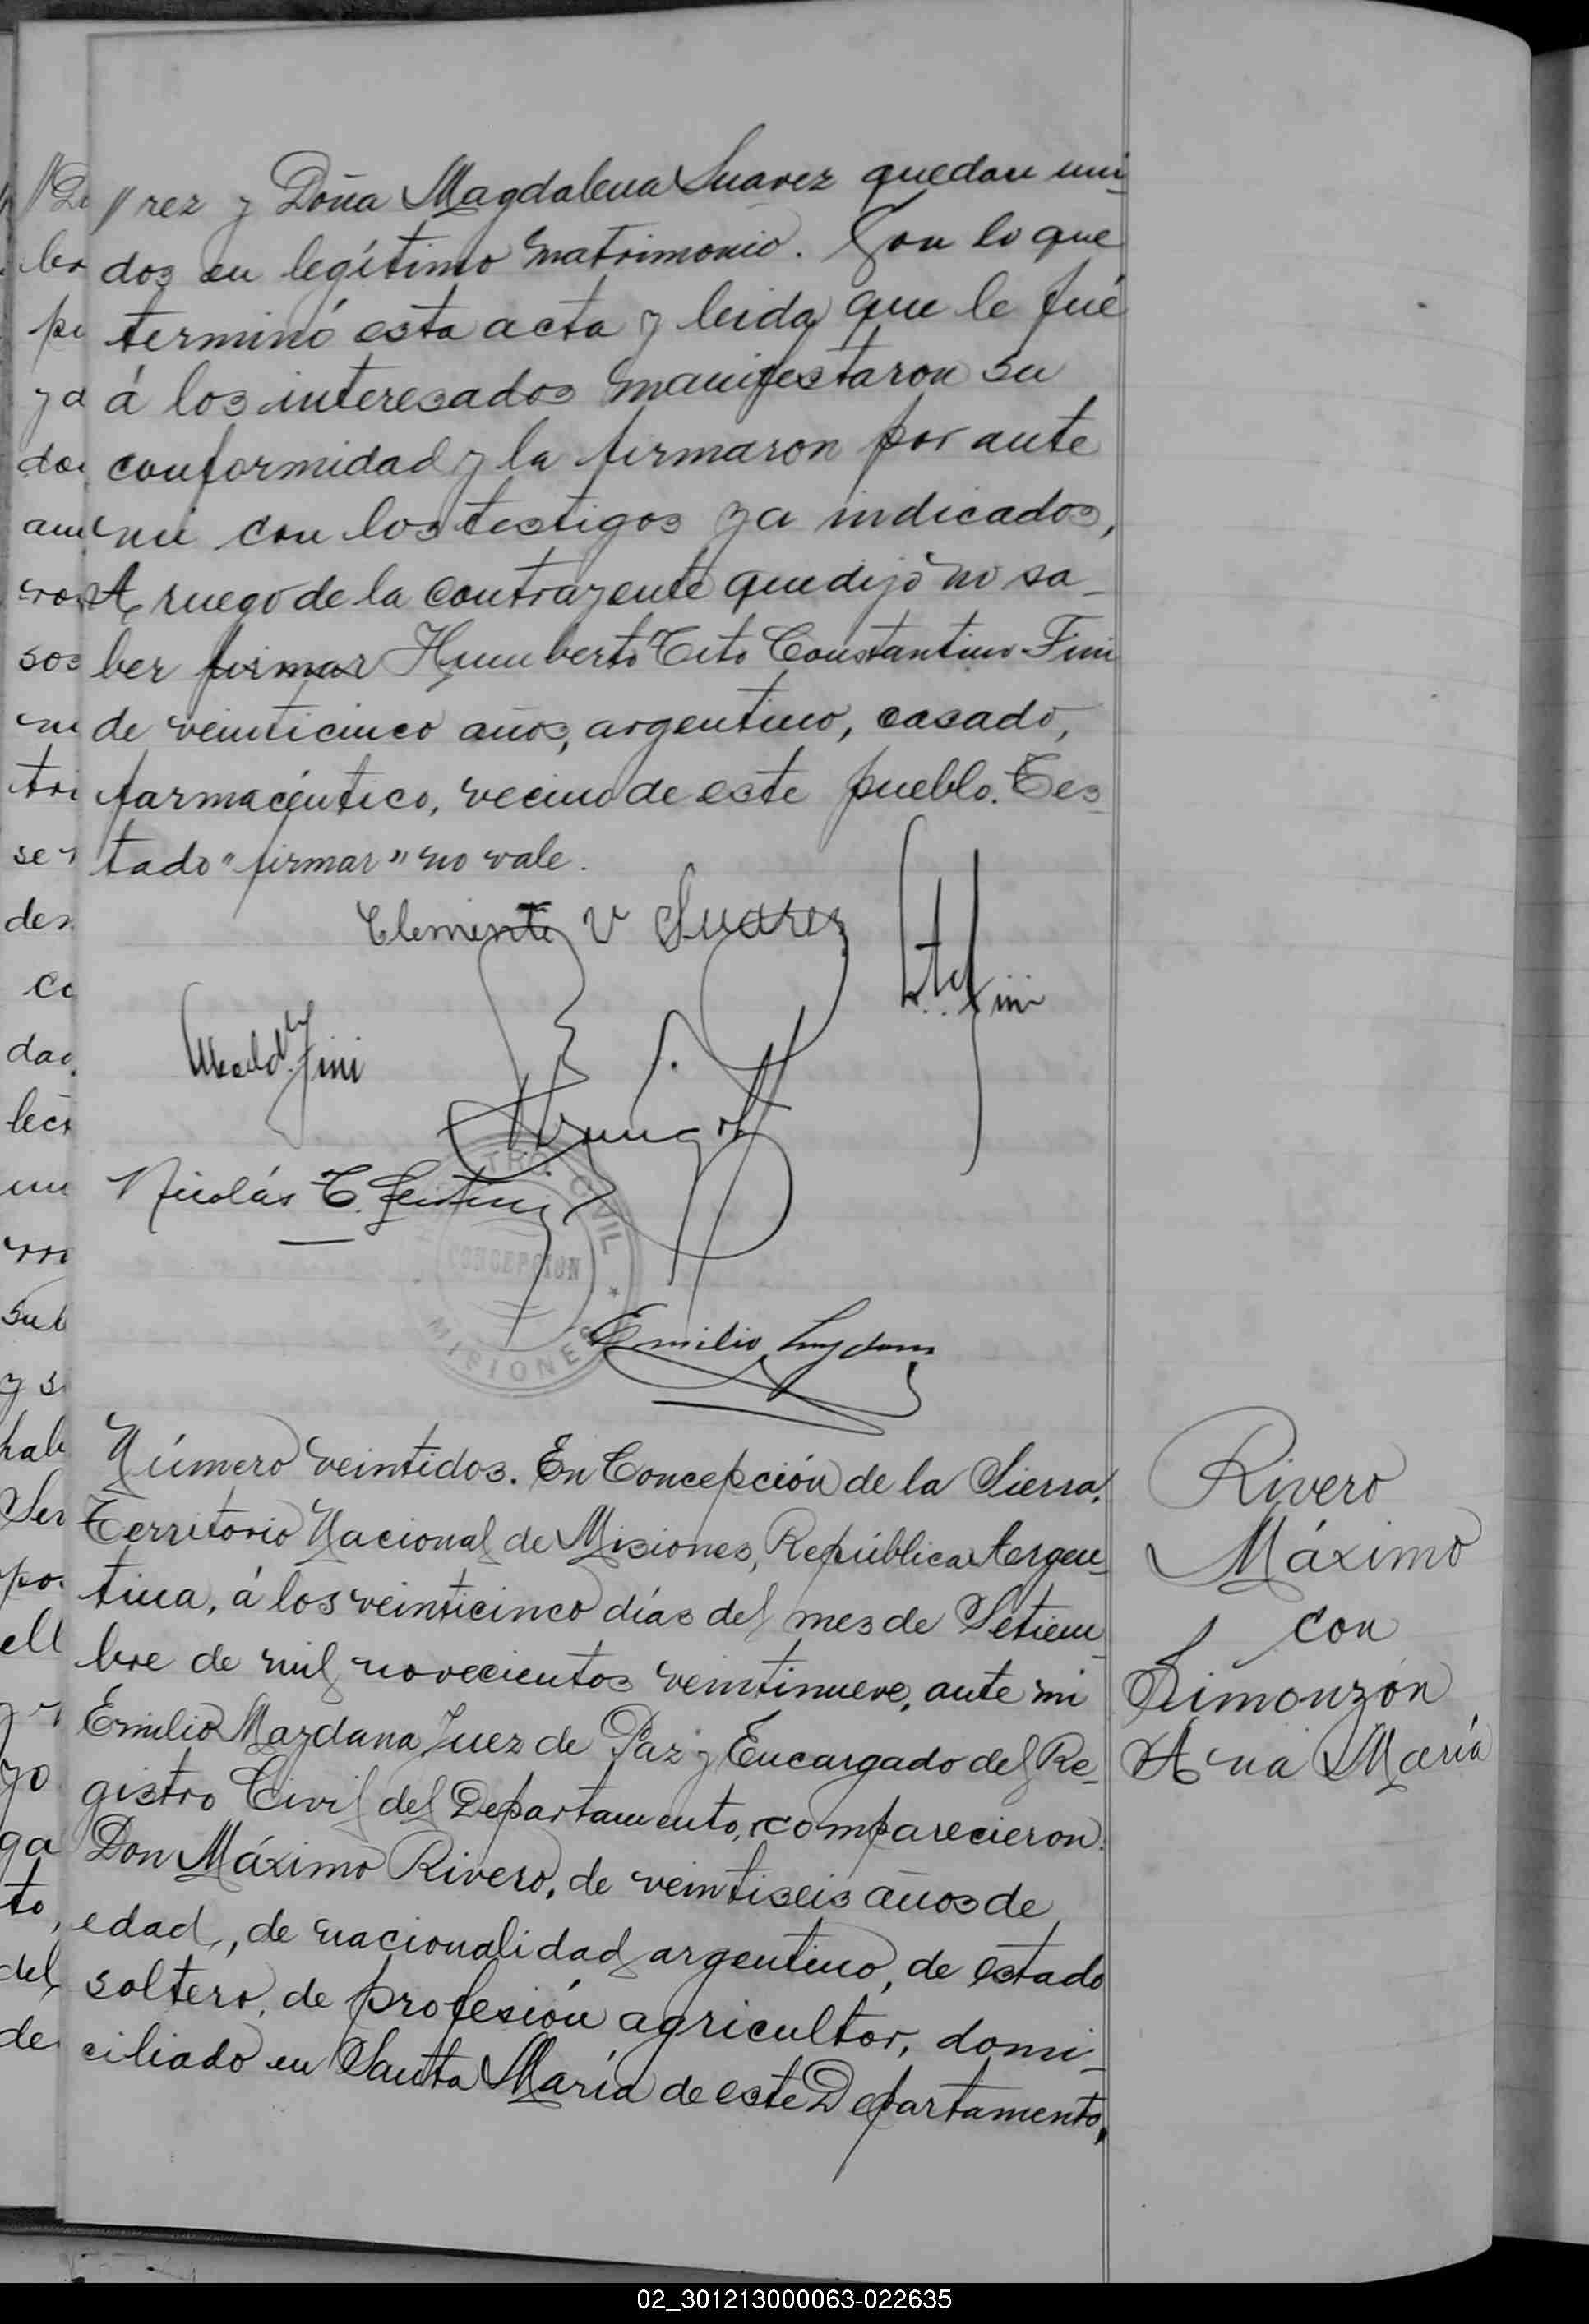 //rez y Doña Magdalena Suarez quedan uni-
dos en legítimo matrimonio. Con lo que
terminó esta acta y leida que le fué
á los interesados manifestaron su
conformidad y la firmaron por ante
mi con los testigos ya indicados,
A ruego de la contrayente que dijo no sa-
ber firmar Humberto Tito Constantino Fini
de veinticinco años, argentino, casado,
farmacéutico, vecino de este pueblo. Tes-
tado "firmar" no vale.
Clemente V Suarez
Fini
Fini
Nicolás C.
REGISTRO CIVIL
CONCEPCION
MISIONES
Emilio
Número veintidos. En Concepción de la Sierra,
Territorio Nacional de Misiones, República Argen-
tina, á los veinticinco días del mes de Setiem-
bre de mil novecientos veintinueve, ante mi
Emilio Maydana Juez de Paz y Encargado del Re-
gistro Civil del Departamento, comparecieron:
Don Máximo Rivero, de veintiseis años de
edad, de nacionalidad argentino, de estado
soltero, de profesión agricultor, domi-
ciliado en Santa María de este Departamento,
Rivero
Máximo
con
Simonzón
Ana María
02_301213000063-022635